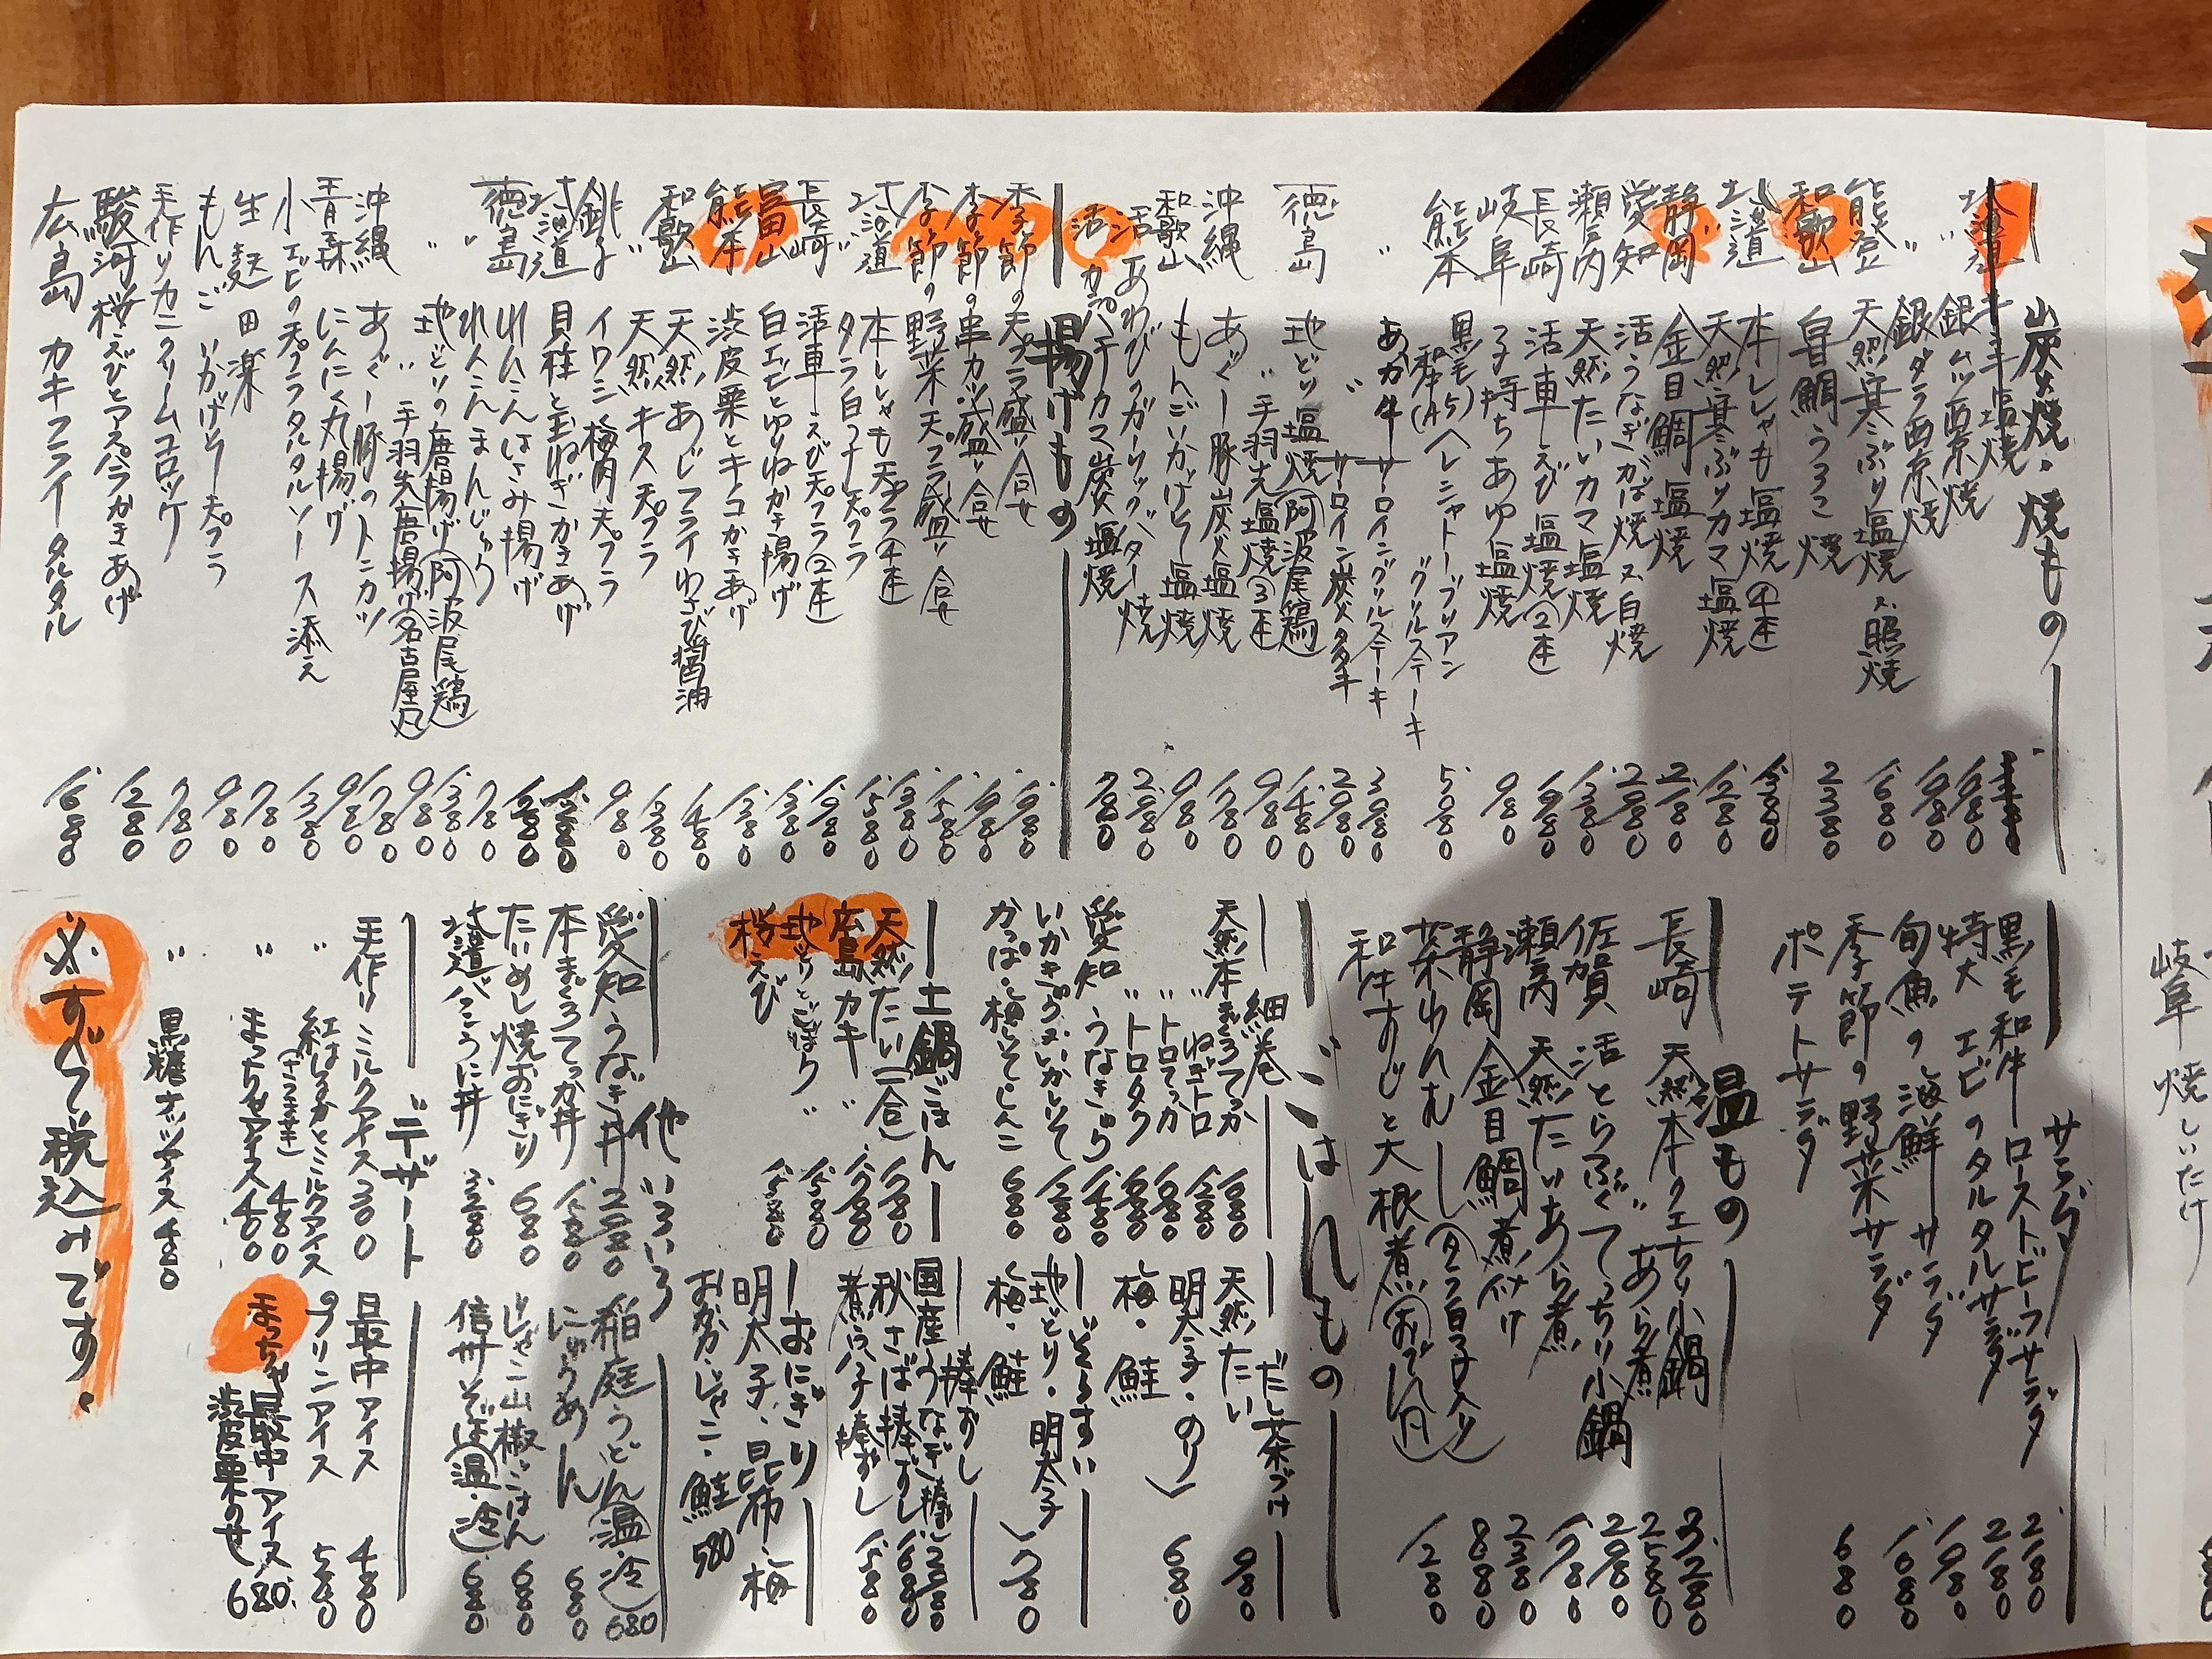 炭火焼・焼もの
銀ムツ西京焼 1,980
〃 銀ダラ西京焼 1,980
能登 天然寒ぶり塩焼 又 照焼 1,680
和歌山 甘鯛うろこ焼 2,380
北海道 本ししゃも塩焼④本 1,580
〃 天然寒ぶりカマ塩焼 1,280
静岡 金目鯛塩焼 2,180
愛知 活うなぎかば焼 又 白焼 2,980
瀬戸内 天然たいカマ塩焼 1,380
長崎 活車えび塩焼②本 1,980
岐阜 子持ちあゆ塩焼 980
熊本 黒毛和牛(A5)ヘレシャトーブリアン
〃グリルステーキ 5,080
〃 あか牛 サーロイングリルステーキ 3,080
〃 サーロイン炭火タタキ 2,980
徳島 地どり塩焼(阿波尾鶏) 1,480
〃手羽先塩焼③本 980
沖縄 あぐー豚炭火塩焼 1,780
和歌山 もんごいかげそ塩焼 980
活あわびのガーリックバター焼 2,980
活カンパチカマ炭塩焼
揚げもの
季節の天プラ盛り合せ 1,980
季節の串カツ盛り合せ 1,980
季節の野菜天プラ盛り合せ 1,580
北海道 本ししゃも天プラ④本
〃 タラ白子天プラ 1,580
長崎 活車えび天プラ②本 1,980
富山 白エビとゆりねかき揚げ 1,380
熊本 渋皮栗とキノコかきあげ 1,380
和歌山 天然あじフライわさび醤油 1,480
〃 天然キス天プラ 1,380
銚子 イワシ梅肉天プラ 980
北海道 貝柱と玉ねぎかきあげ
徳島 れんこんはさみ揚げ 1,280
〃 れんこんまんじゅう 780
地どりの唐揚げ(阿波尾鶏) 1,380
〃手羽先唐揚げ名古屋風 980
沖縄 あぐー豚のトンカツ 1,780
青森 にんにく丸揚げ 980
小エビの天プラタルタルソース添え 1,380
生麩田楽 780
もんごいかげそ天プラ 980
手作りカニクリームコロッケ 780
駿河桜えびとアスパラかきあげ 1,280
広島 カキフライタルタル 1,680
サラダ
黒毛和牛ローストビーフサラダ 2,180
特大エビのタルタルサラダ 2,180
旬魚の海鮮サラダ 1,980
季節の野菜サラダ 1,080
ポテトサラダ 680
温もの
長崎 天然本クエちり小鍋 3,280
〃 あら煮 2,580
佐賀 活とらふぐてっちり小鍋 2,980
瀬戸内 天然たいあら煮 1,780
静岡 金目鯛煮付け 2,380
茶わんむし(タラ白子入り) 880
和牛すじと大根煮(おでん風) 1,280
ごはんもの
細巻
天然本まぐろてっか 1,980
〃ねぎトロ 1,280
〃トロてっか 1,980
〃トロタク 1,680
愛知 うなぎゅう 1,480
いかきゅう・いかしそ 1,280
かっぱ・梅しそしんこ 680
だし茶づけ
天然たい 980
明太子・のり
梅・鮭 680
ぞうすい
地どり・明太子
梅・鮭 780
土鍋ごはん
天然たい(一合) 1,580
広島カキ〃 1,780
地どりとごぼう〃 1,580
桜えび 1,580
棒ずし
国産うなぎ棒ずし 2,380
秋さば棒ずし 1,680
煮穴子棒ずし 1,580
おにぎり
明太子、昆布、梅
おかか・じゃこ・鮭 580
他いろいろ
愛知うなぎ丼 2,980
本まぐろてっか丼 1,580
たいめし焼おにぎり 680
北海道バフンうに丼 3,280
稲庭うどん(温・冷) 680
にゅうめん 680
じゃこ山椒ごはん 680
信州そば(温・冷) 680
デザート
手作りミルクアイス 300
〃 紅はるかとミルクアイス(さつま芋) 480
〃 まっちゃアイス 400
〃 黒糖ナッツアイス 480
最中アイス 480
プリンアイス 580
まっちゃ最中アイス
渋皮栗のせ 680
※すべて税込みです。
岐阜 焼しいたけ